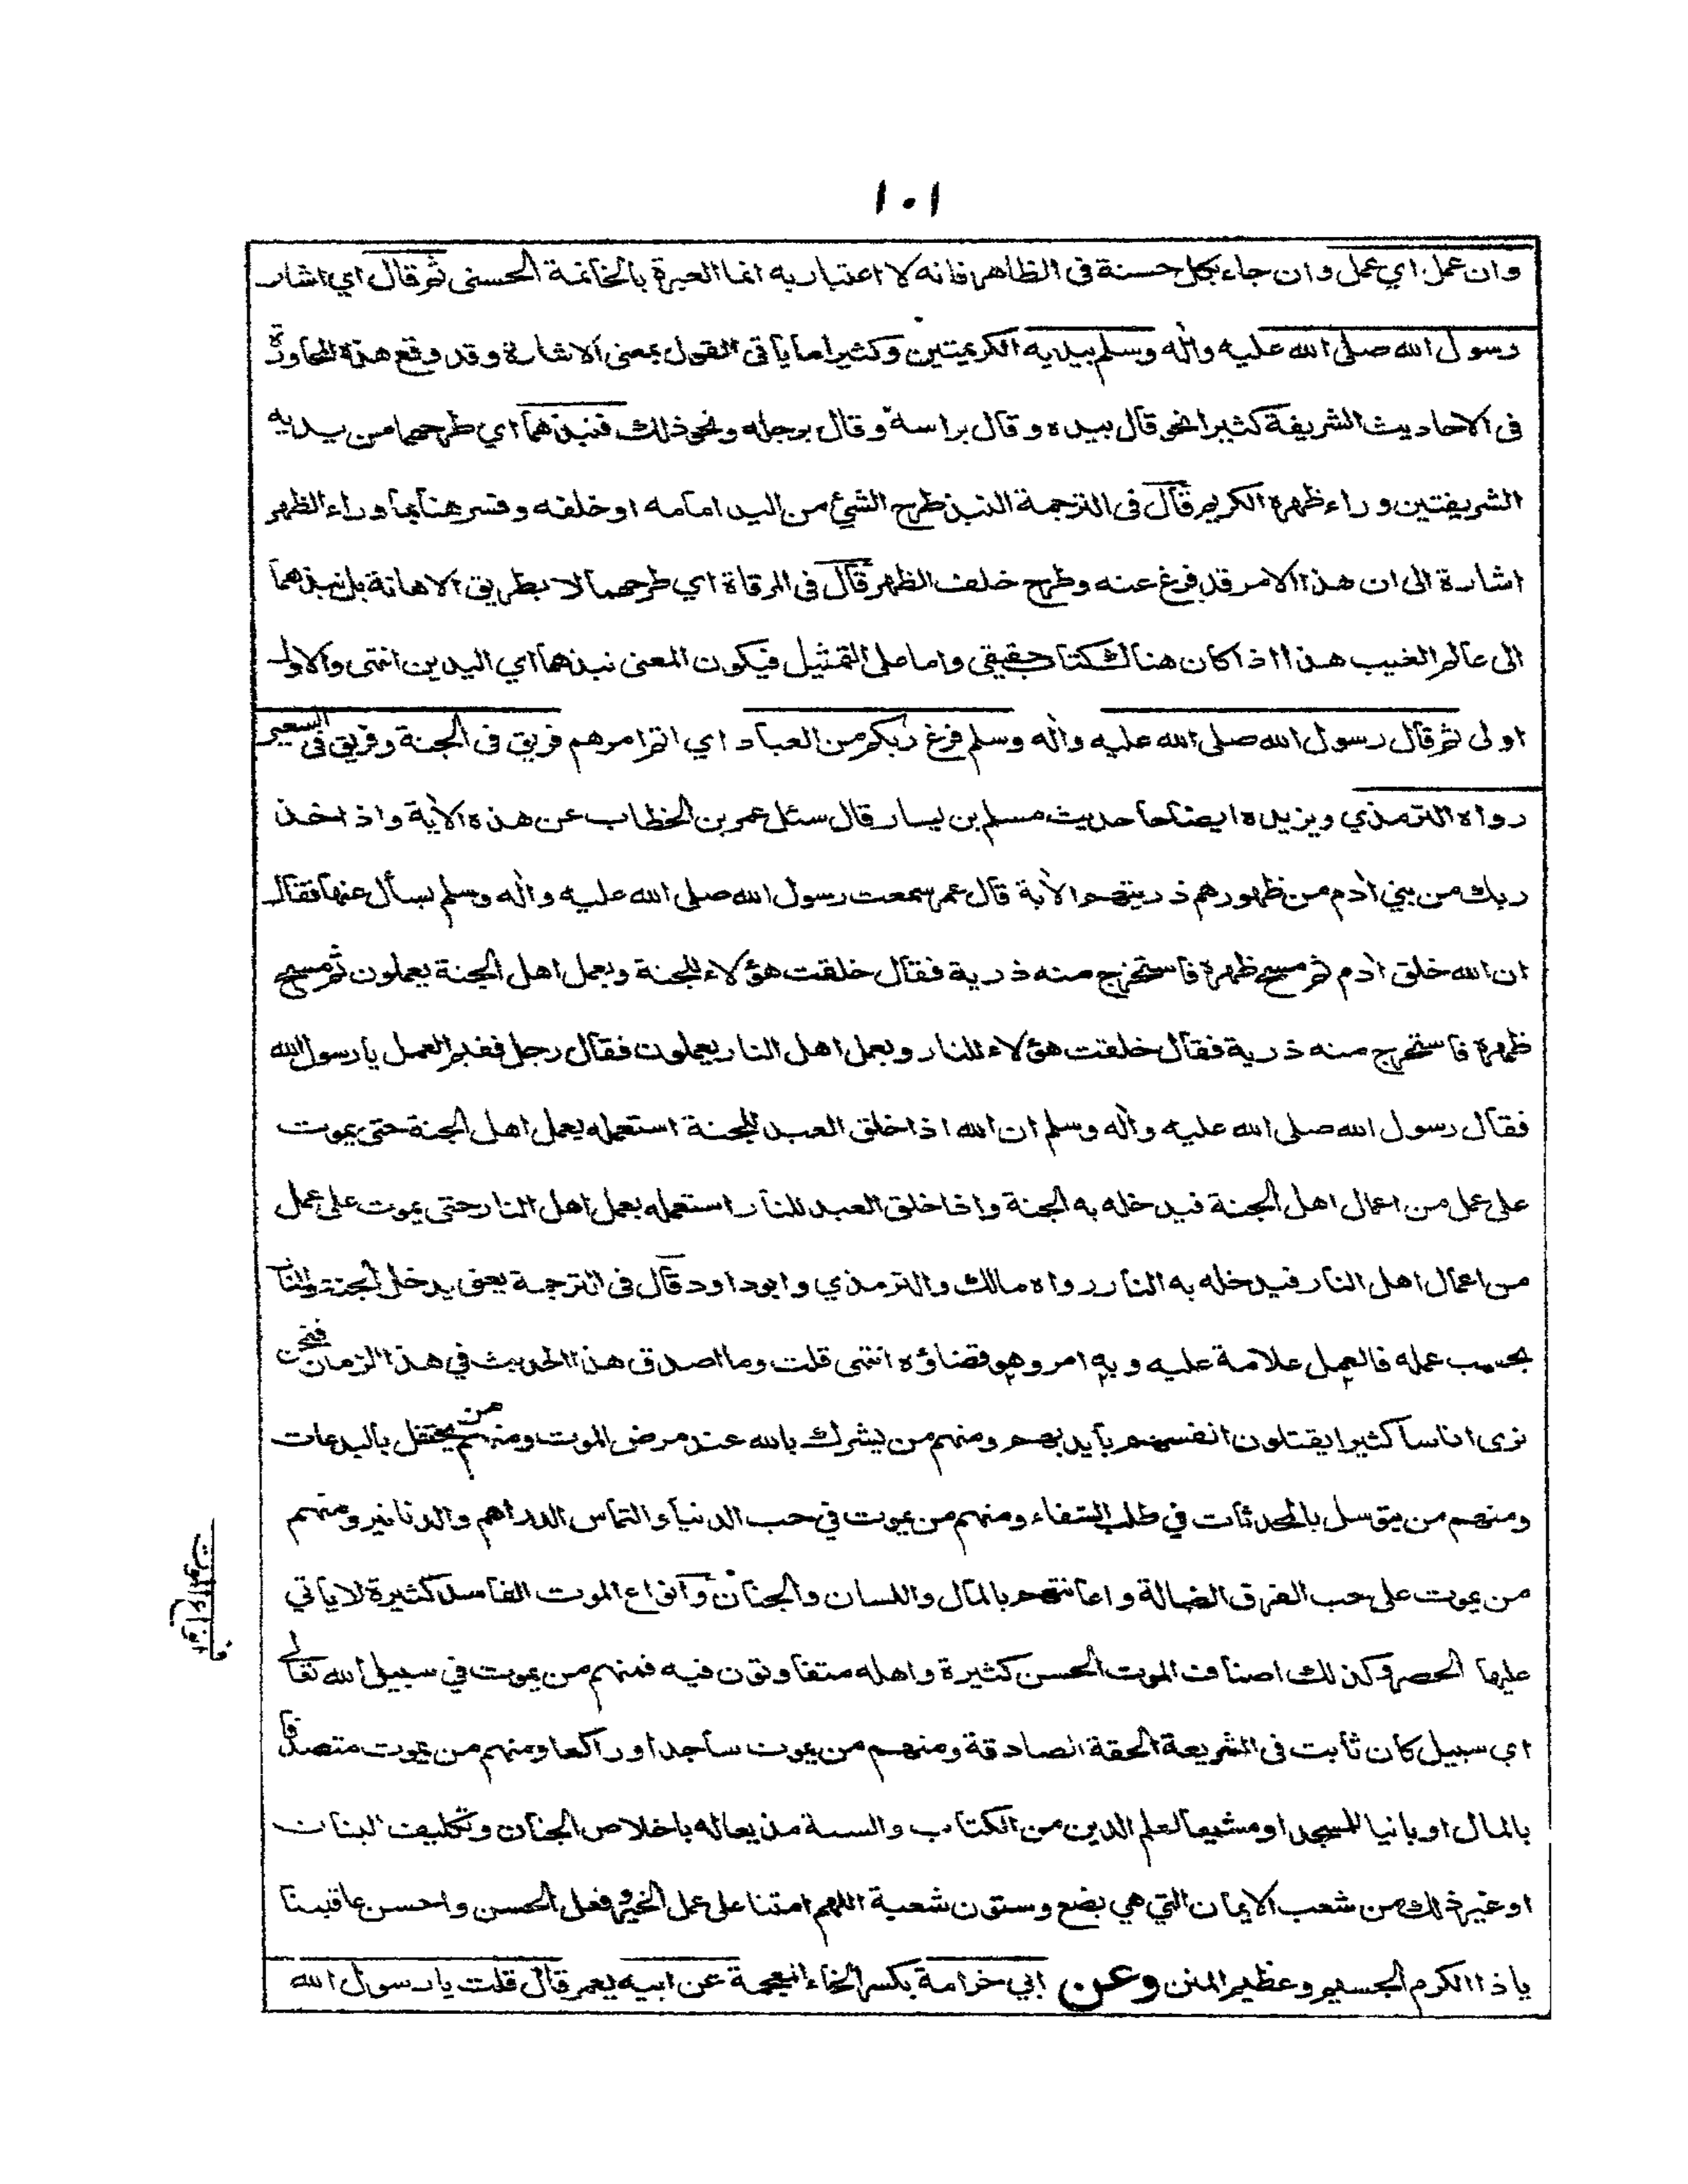 ١٠١
وان عمل اي عمل وان جاء بكل حسنة فى الظاهر فانه لا اعتبار به انما العبرة بالخاتمة الحسنى ثم قال اي اشار
رسول الله صلى الله عليه واٰله وسلم بيديه الكريمتين وكثيرا ما ياتى القول بمعنى الاشارة وقد وقع هذه المحاورة
فى الاحاديث الشريفة كثيرا نحو قال بيده وقال براسه وقال برجله ونحو ذلك فنبذهما اي طرحهما من يديه
الشريفتين وراء ظهره الكريم قال فى الترجمة النبذ طرح الشئ من اليد امامه او خلفه وفسر هنا بما وراء الظهر
اشارة الى ان هذا الامر قد فرغ عنه وطرح خلف الظهر قال فى المرقاة اي طرحهما لا بطريق الاهانة بل نبذهما
الى عالم الغيب هذا اذا كان هناك كتاب حقيقي واما على التمثيل فيكون المعنى نبذهما اي اليدين انتهى والاول
اولى ثم قال رسول الله صلى الله عليه واٰله وسلم فرغ ربكم من العباد اي اتم امرهم فريق فى الجنة وفريق فى السعير
رواه الترمذي ويزيده ايضاحا حديث مسلم بن يسار قال سئل عمر بن الخطاب عن هذه الاٰية واذ اخذ
ربك من بني اٰدم من ظهورهم ذريتهم الاٰية قال عمر سمعت رسول الله صلى الله عليه واٰله وسلم يسأل عنها فقال
ان الله خلق اٰدم ثم مسح ظهره فاستخرج منه ذرية فقال خلقت هؤلاء للجنة وبعمل اهل الجنة يعملون ثم مسح
ظهره فاستخرج منه ذرية فقال خلقت هؤلاء للنار وبعمل اهل النار يعملون فقال رجل ففيم العمل يا رسول الله
فقال رسول الله صلى الله عليه واٰله وسلم ان الله اذا خلق العبد للجنة استعمله بعمل اهل الجنة حتى يموت
على عمل من اعمال اهل الجنة فيدخله به الجنة واذا خلق العبد للنار استعمله بعمل اهل النار حتى يموت على عمل
من اعمال اهل النار فيدخله به النار رواه مالك والترمذي وابوداود قال فى الترجمة يعنى يدخل الجنة والنار
بحسب عمله فالعمل علامة عليه وبه امر وهو قضاؤه انتهى قلت وما اصدق هذا الحديث في هذا الزمان فنحن
نرى اناسا كثيرا يقتلون انفسهم بايديهم ومنهم من يشرك بالله عند مرض الموت ومنهم من يحتفل بالبدعات
ومنهم من يتوسل بالمحدثات في طلب الشفاء ومنهم من يموت في حب الدنيا والتماس الدراهم والدنانير ومنهم
من يموت على حب الفرق الضالة واعانتهم بالمال واللسان والجنان وانواع الموت الفاسد كثيرة لا ياتي
عليها الحصر وكذلك اصناف الموت الحسن كثيرة واهله متفاوتون فيه فمنهم من يموت في سبيل الله تعالى
اي سبيل كان ثابت فى الشريعة الحقة الصادقة ومنهم من يموت ساجدا وراكعا ومنهم من يموت متصدقا
بالمال او بانيا للمسجد او مشيعا لعلم الدين من الكتاب والسنة مذيعا له باخلاص الجنان وتكليف البنان
او غير ذلك من شعب الايمان التي هي بضع وستون شعبة اللهم امتنا على عمل الخير وفعل الحسن واحسن عاقبتنا
يا ذا الكرم الجسيم وعظيم المنن وعن ابي خزامة بكسر الخاء المعجمة عن ابيه يعمر قال قلت يا رسول الله
ف انواع الموت